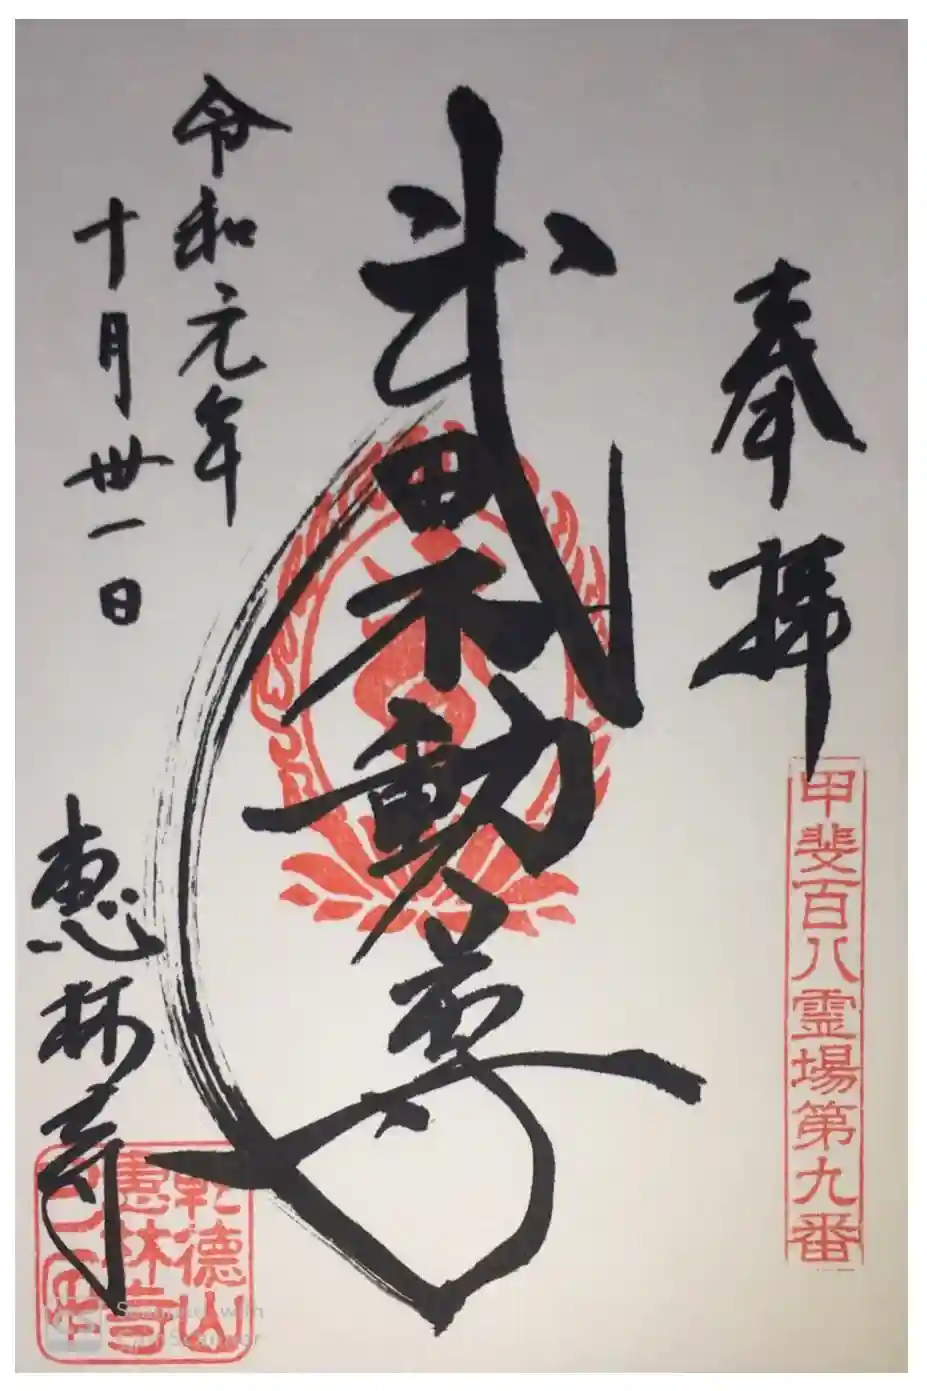 奉拝
甲斐百八霊場第九番
武田不動尊
令和元年
十月卅一日
恵林寺
乾徳山
恵林寺
Scanned with
CamScanner